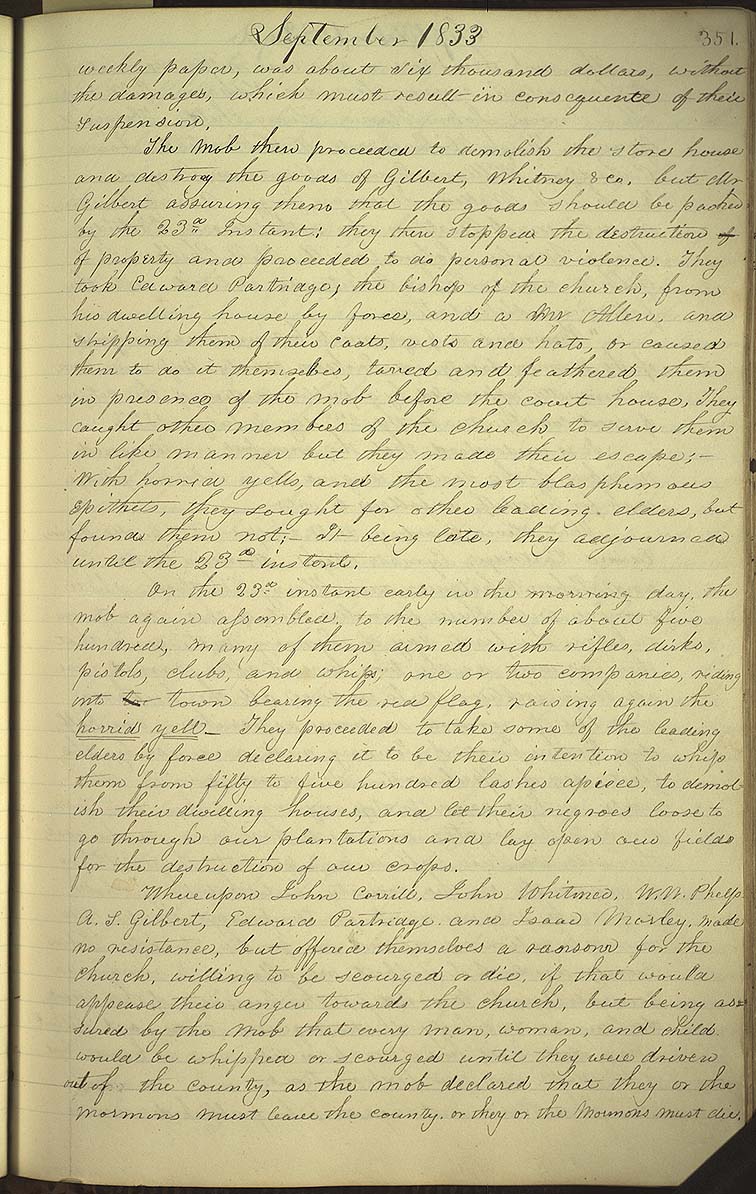 September 1833
351.
weekly paper, was about six thousand dollars, without
the damages, which must result in consequence of their
suspension.
The mob then proceeded to demolish the store house
and destroy the goods of Gilbert, Whitney & co. but Mr
Gilbert assuring them that the goods should be packed
by the 23d Instant; they then stopped the destruction of
of property and proceeded to do personal violence. They
took Edward Partridge, the bishop of the church, from
his dwelling house by force, and a Mr Allen, and
stripping them of their coats, vests and hats, or caused
them to do it themselves, tarred and feathered them
in presence of the mob before the court house, They
caught other members of the church to serve them
in like manner but they made their escape;—
With horrid yells, and the most blasphemous
epithets, they sought for other leading elders, but
found them not;— It being late, they adjourned
until the 23d instant.
On the 23d instant early in the morning day, the
mob again assembled to the number of about five
hundred, many of them armed with rifles, dirks,
pistols, clubs, and whips; one or two companies, riding
into town bearing the red flag, raising again the
horrid yell— They proceeded to take some of the leading
elders by force declaring it to be their intention to whip
them from fifty to five hundred lashes apiece, to demol
ish their dwelling houses, and let their negroes loose to
go through our plantations and lay open our fields
for the destruction of our crops.
Whereupon John Corrill, John Whitmer, W. W. Phelps
A. S. Gilbert, Edward Partridge and Isaac Morley, made
no resistance, but offered themselves a ransom for the
church, willing to be scourged or die, if that would
appease their anger towards the church, but being as=
sured by the mob that every man, woman, and child
would be whipped or scourged until they were driven
out of the county, as the mob declared that they or the
mormons must leave the county. or they or the Mormons must die.